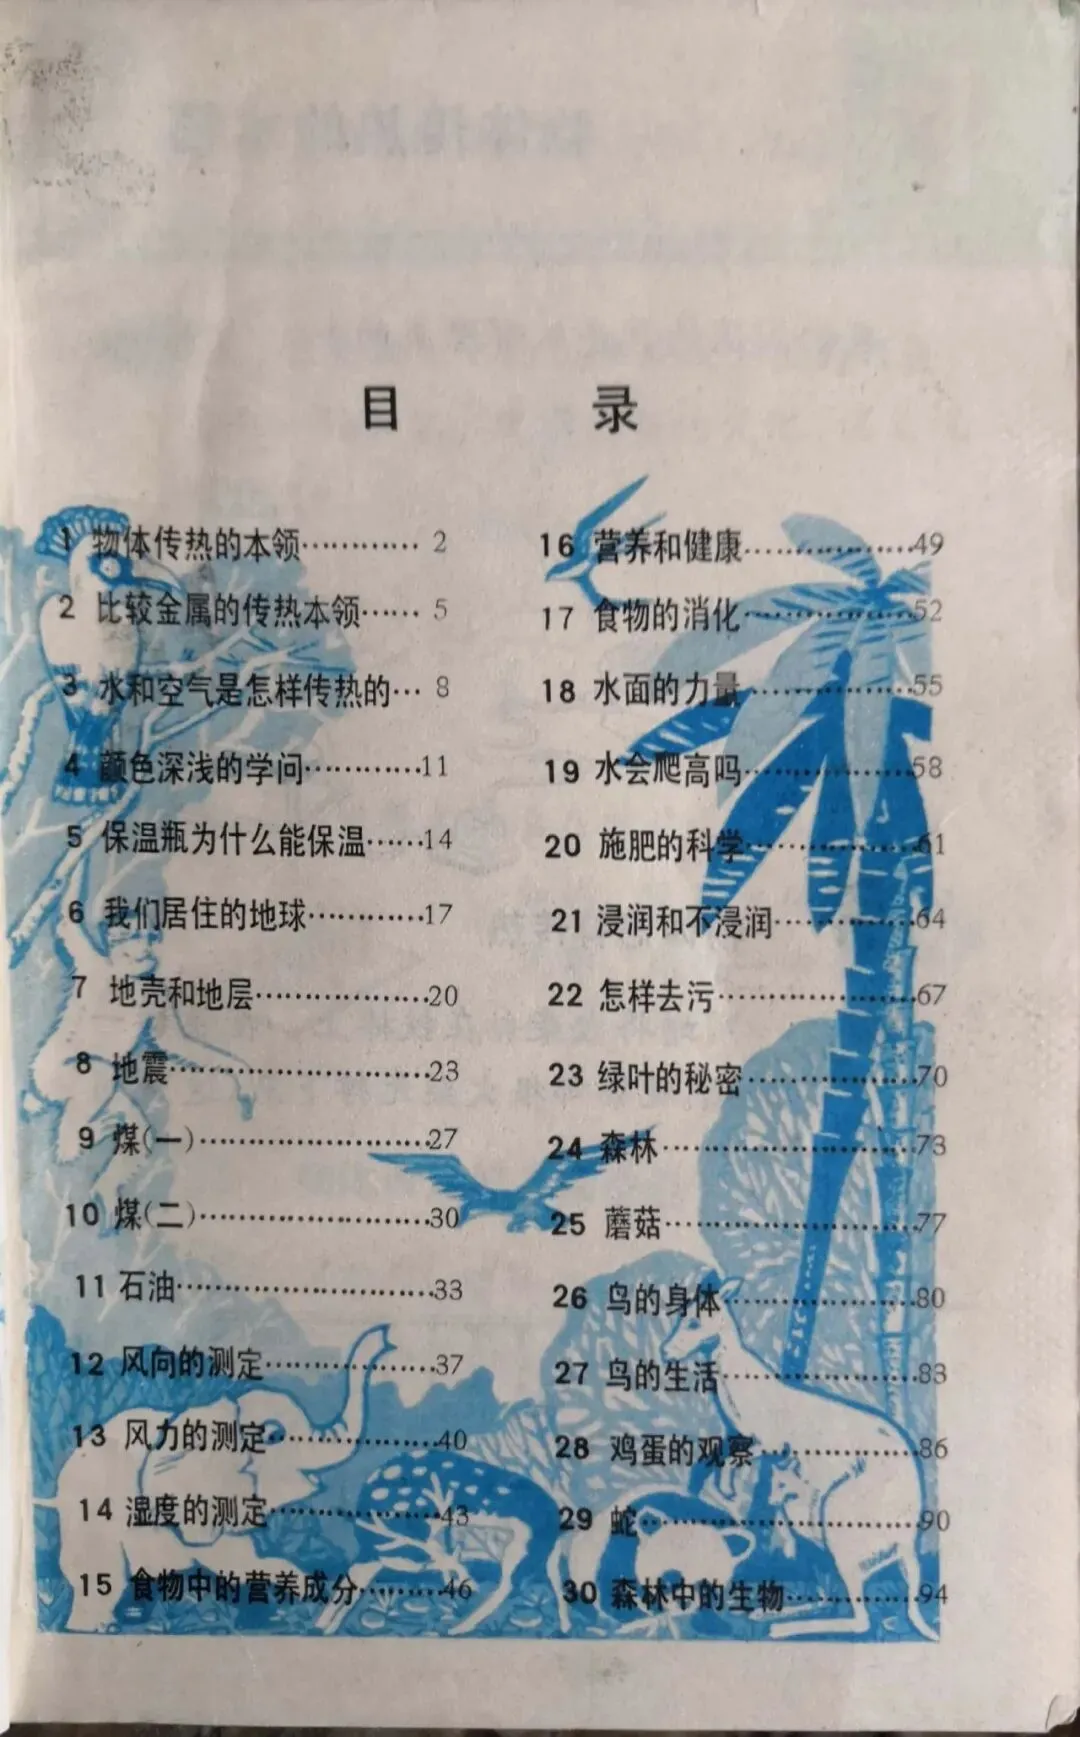 目 录
1 物体传热的本领………… 2
2 比较金属的传热本领…… 5
3 水和空气是怎样传热的… 8
4 颜色深浅的学问…………11
5 保温瓶为什么能保温……14
6 我们居住的地球…………17
7 地壳和地层………………20
8 地震………………………23
9 煤(一)……………………27
10 煤(二)……………………30
11 石油………………………33
12 风向的测定………………37
13 风力的测定………………40
14 湿度的测定………………43
15 食物中的营养成分………46
16 营养和健康………………49
17 食物的消化………………52
18 水面的力量………………55
19 水会爬高吗………………58
20 施肥的科学………………61
21 浸润和不浸润……………64
22 怎样去污…………………67
23 绿叶的秘密………………70
24 森林………………………73
25 蘑菇………………………77
26 鸟的身体…………………80
27 鸟的生活…………………83
28 鸡蛋的观察………………86
29 蛇…………………………90
30 森林中的生物……………94